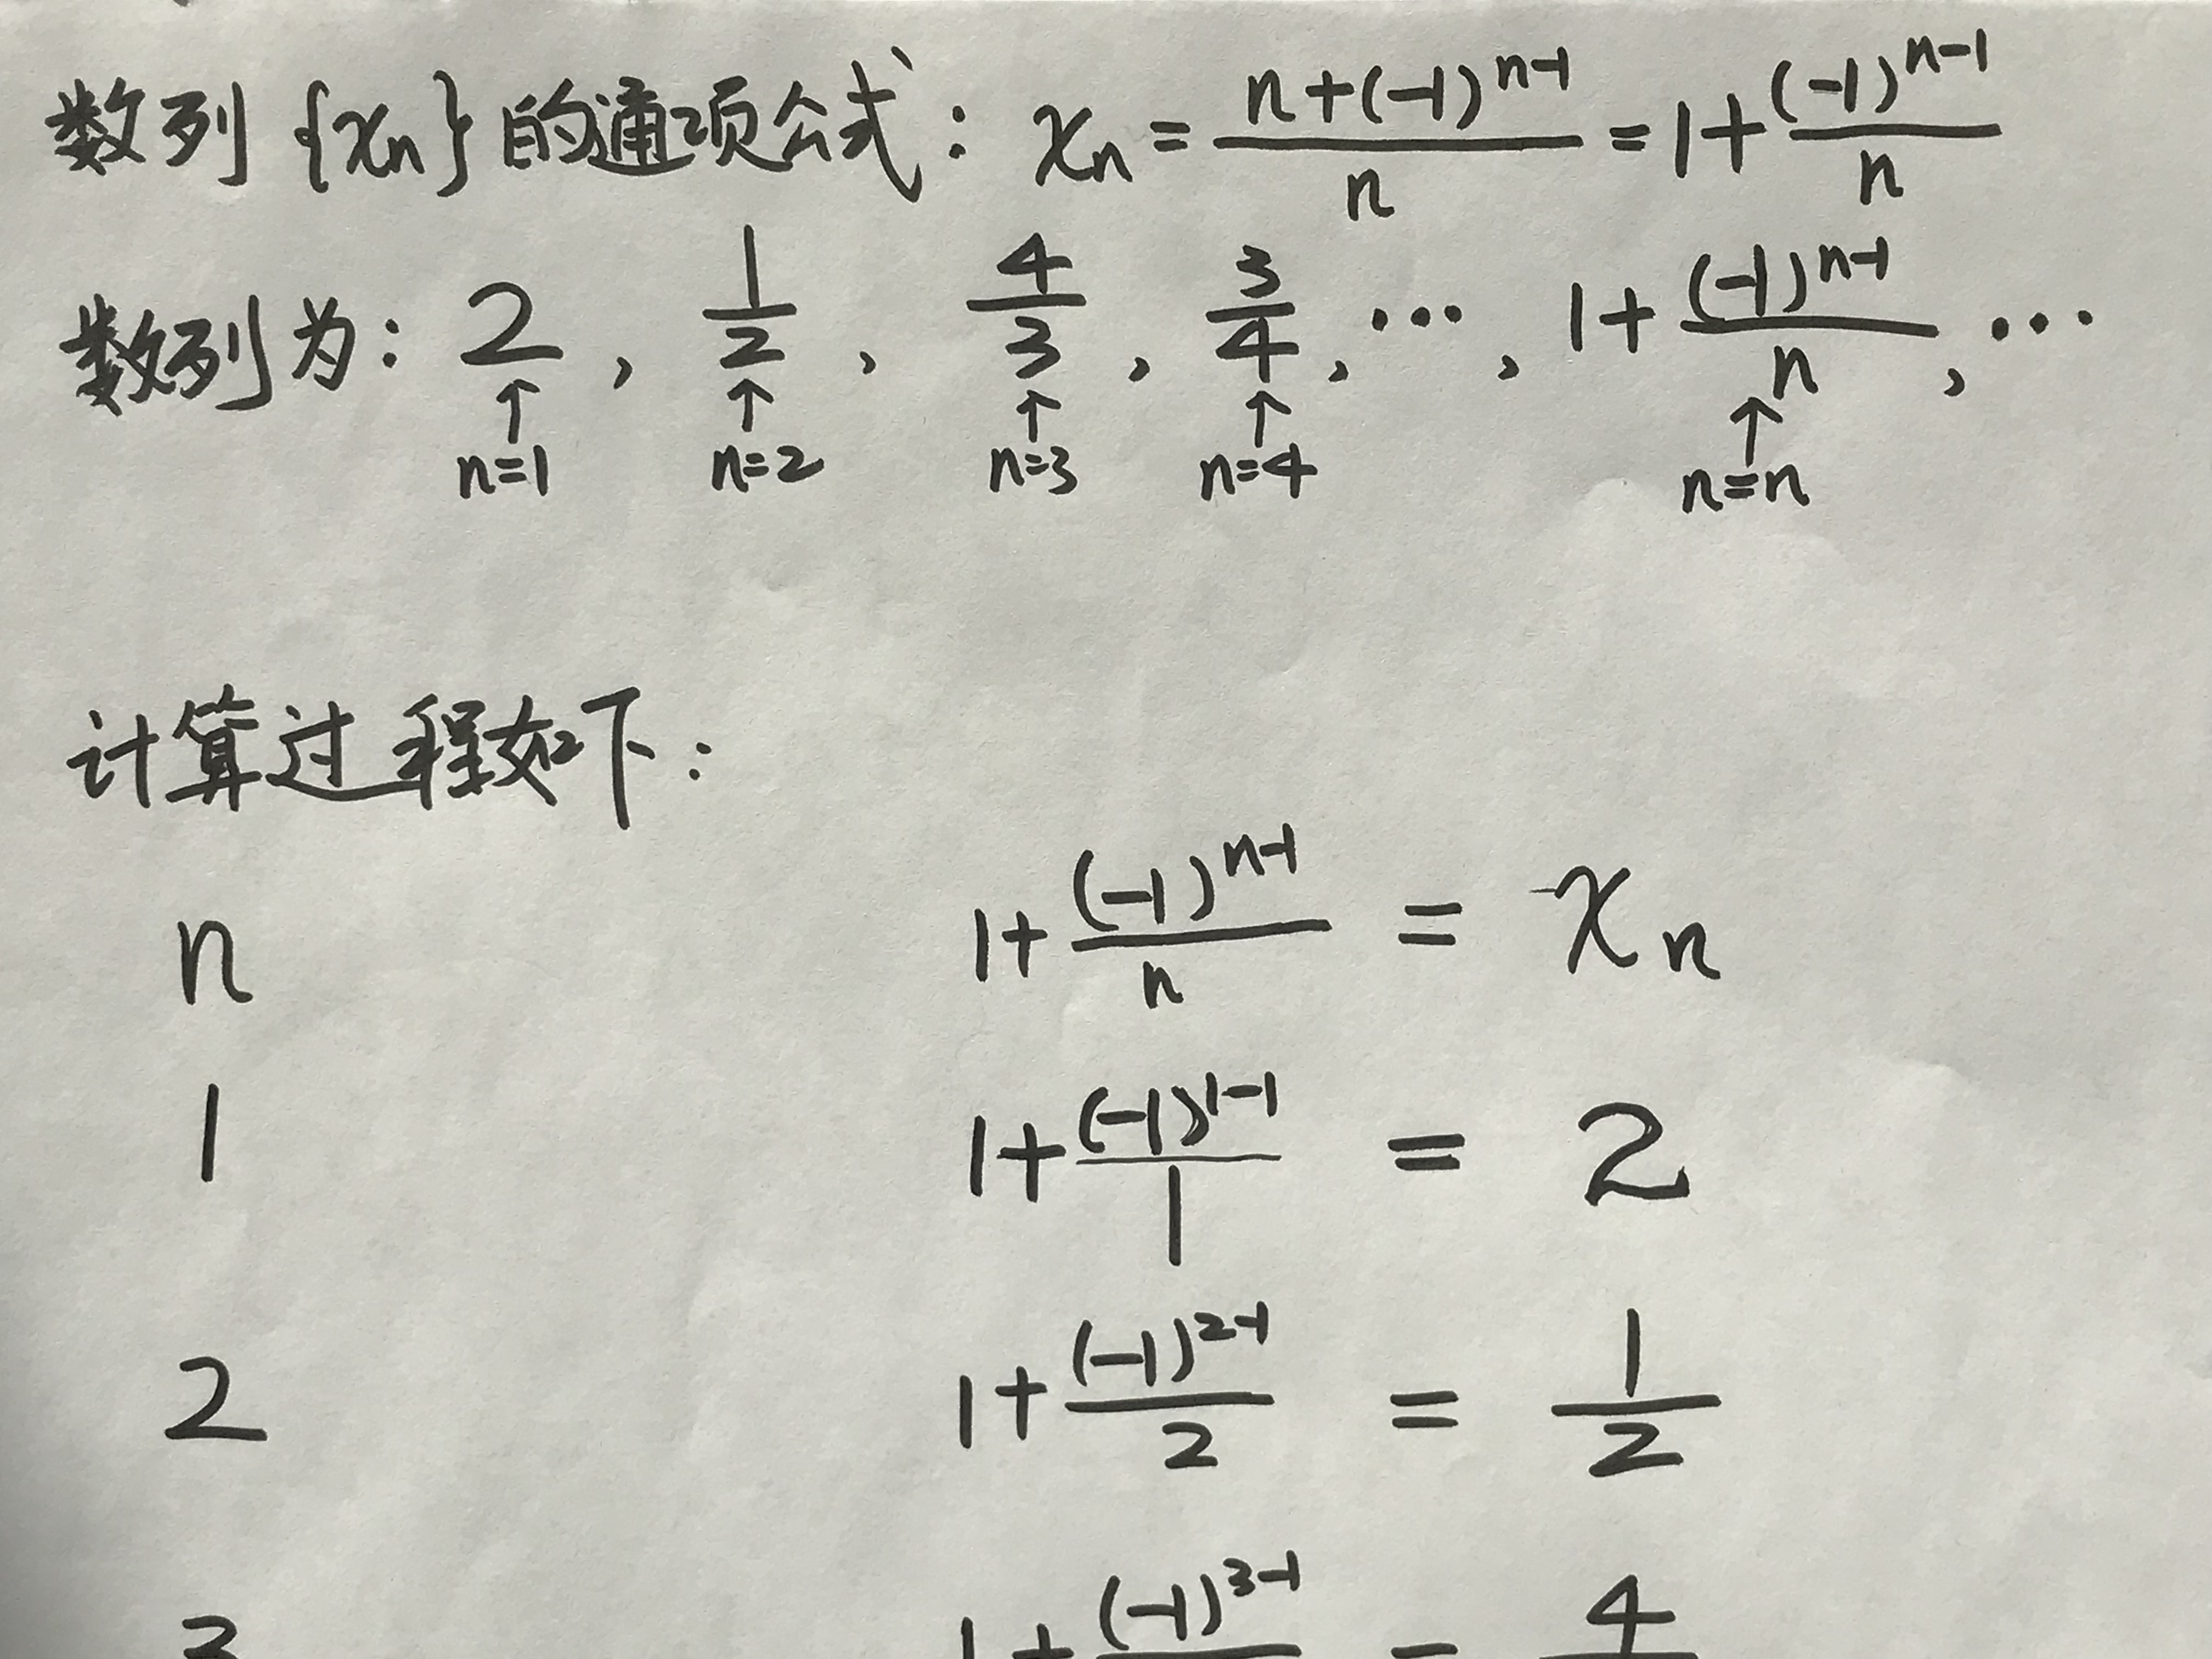 数列 {xₙ} 的通项公式: xₙ = (n+(-1)^(n-1))/n = 1+(-1)^(n-1)/n
数列为: 2, 1/2, 4/3, 3/4, …, 1+(-1)^(n-1)/n, …
↑ ↑ ↑ ↑ ↑
n=1 n=2 n=3 n=4 n=n
计算过程如下:
n 1+(-1)^(n-1)/n = xₙ
1 1+(-1)^(1-1)/1 = 2
2 1+(-1)^(2-1)/2 = 1/2
3 1+(-1)^(3-1) = 4